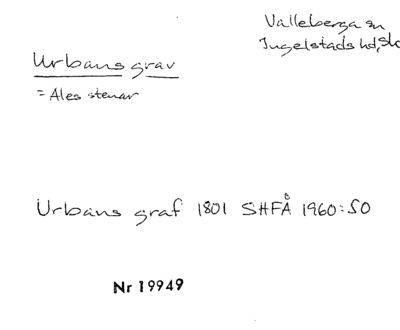 Valleberga sn
Ingelstads hd, Sk
Urbans grav
= Ales stenar
Urbans graf 1801 SHFÅ 1960:50
Nr 19949